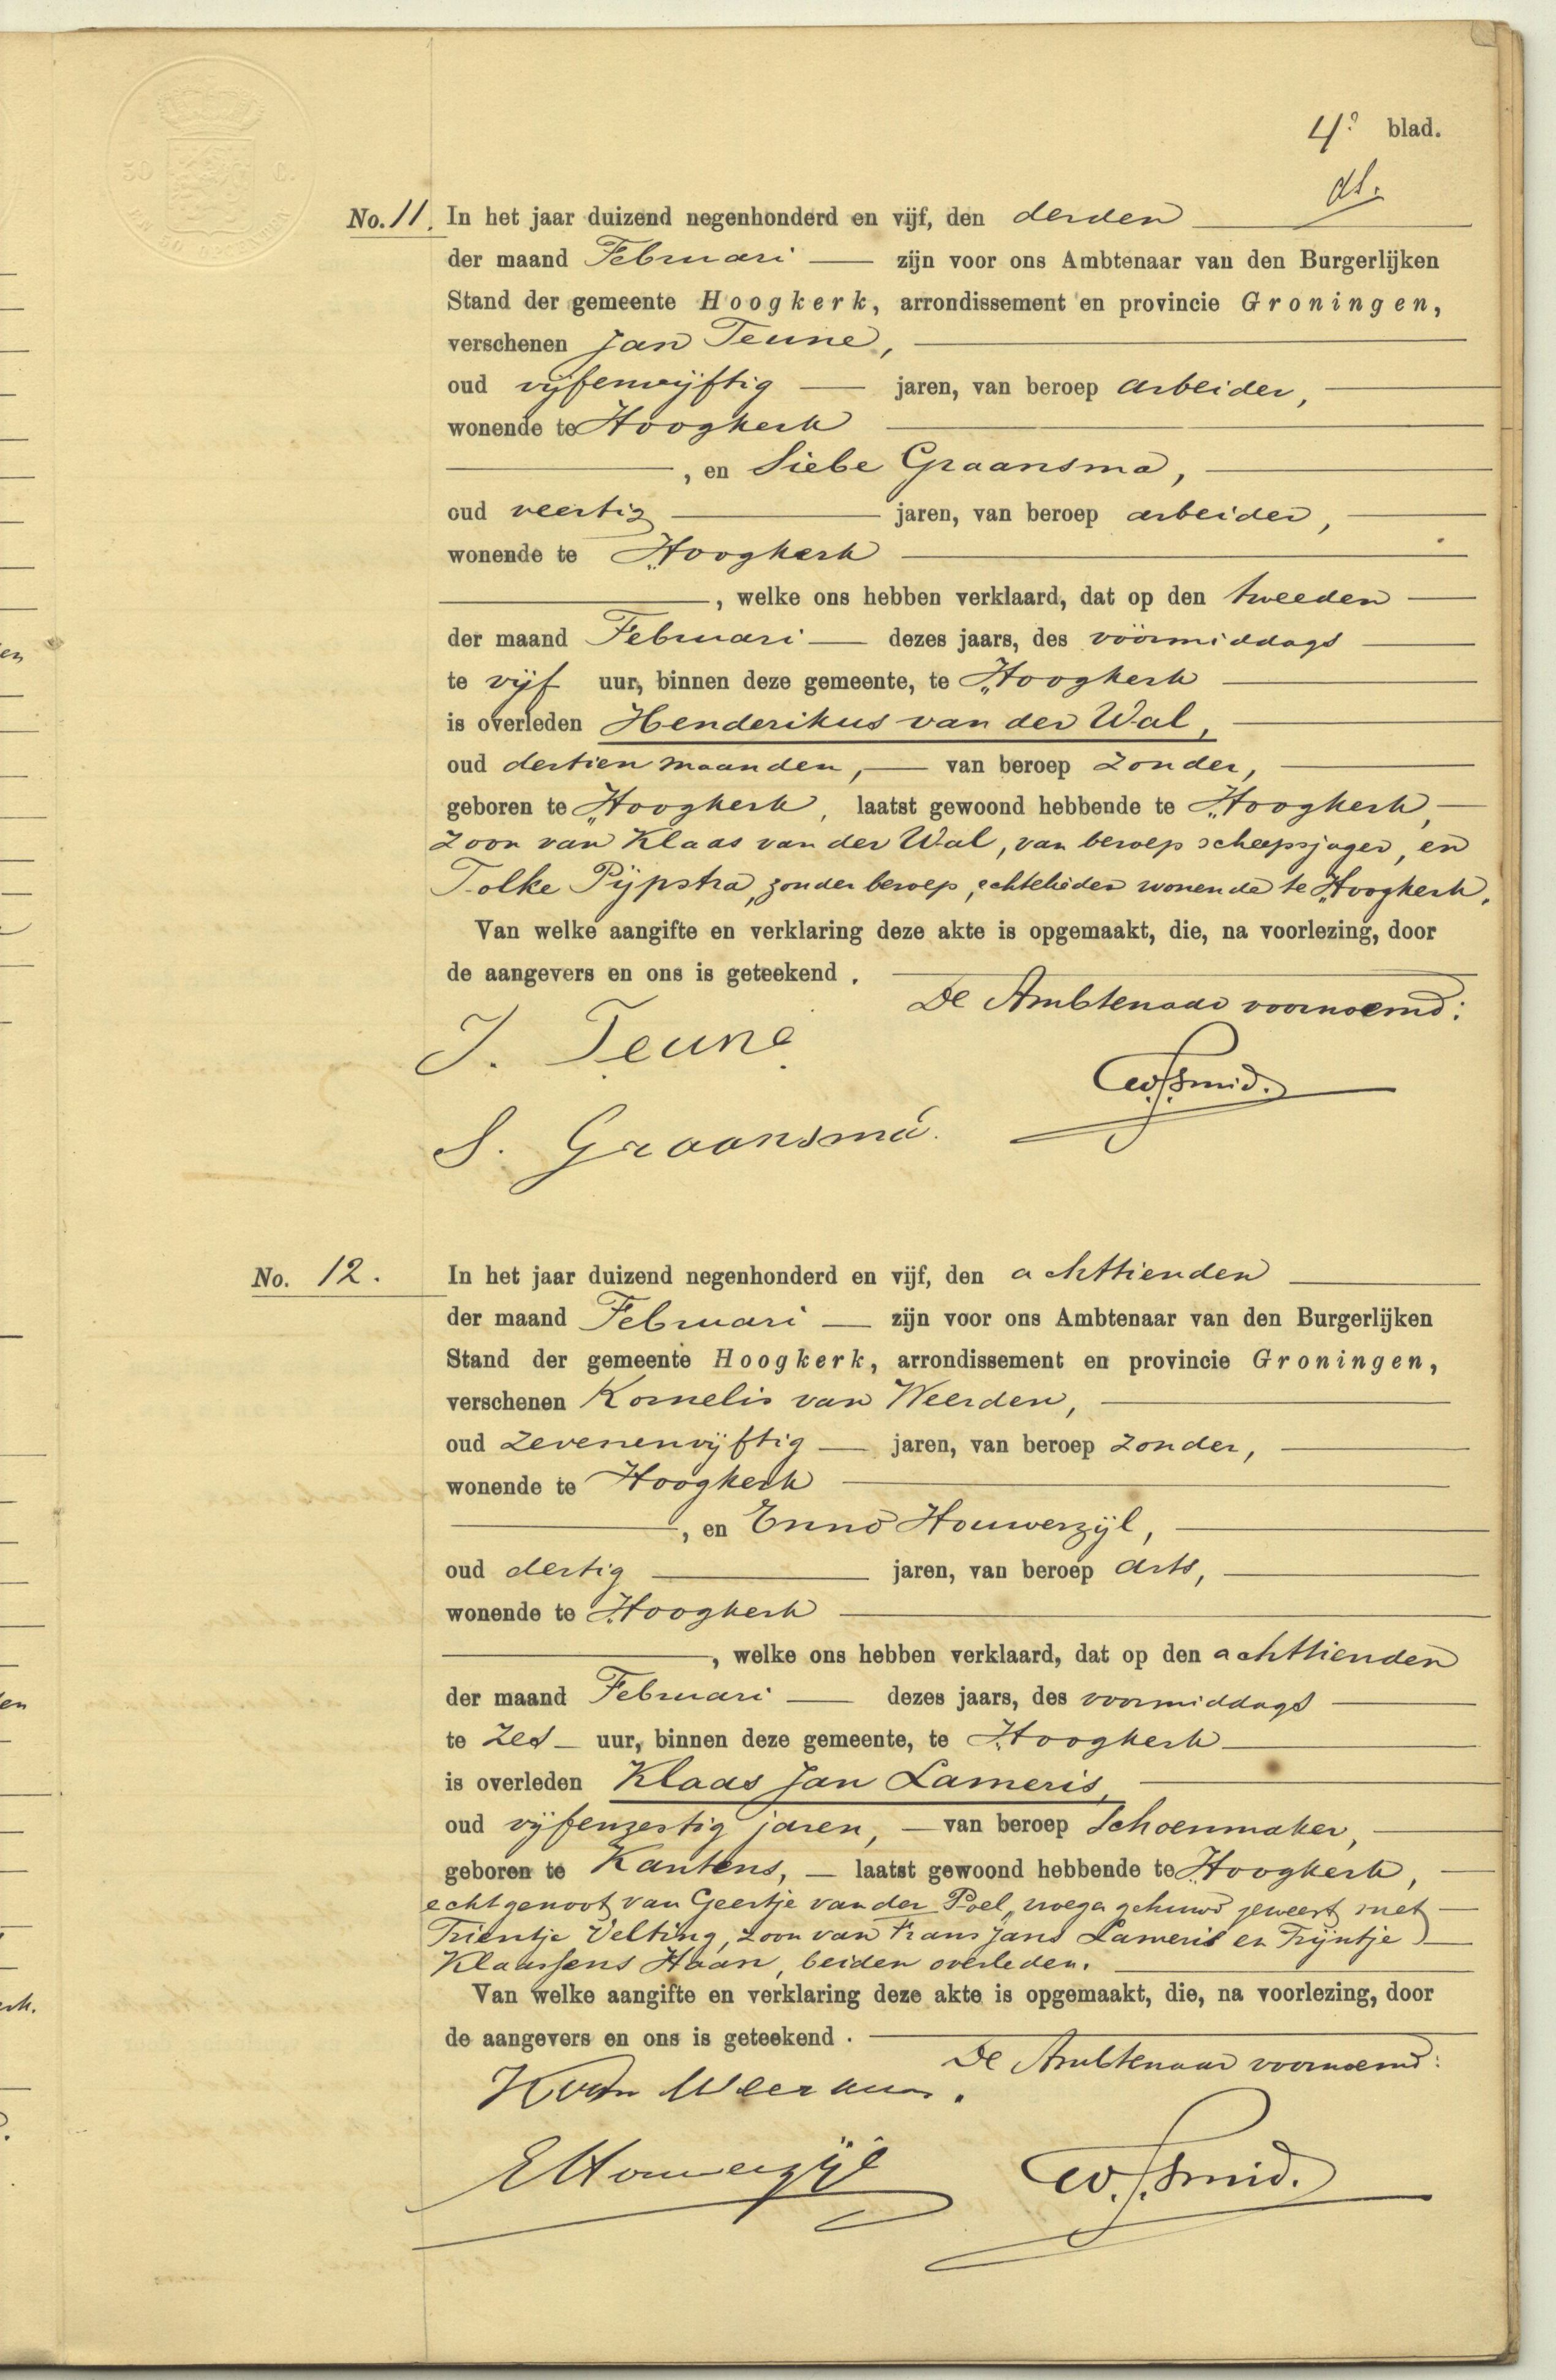 4e blad.
No. 11. In het jaar duizend negenhonderd en vijf, den derden
der maand Februari zijn voor ons Ambtenaar van den Burgerlijken
Stand der gemeente Hoogkerk, arrondissement en provincie Groningen,
verschenen Jan Teune,
oud vijfenvijftig jaren, van beroep arbeider,
wonende te Hoogkerk
, en Siebe Graansma,
oud veertig jaren, van beroep arbeider,
wonende te Hoogkerk
, welke ons hebben verklaard, dat op den tweeden
der maand Februari dezes jaars, des voormiddags
te vijf uur, binnen deze gemeente, te Hoogkerk
is overleden Henderikus van der Wal,
oud dertien maanden, van beroep zonder,
geboren te Hoogkerk, laatst gewoond hebbende te Hoogkerk,
zoon van Klaas van der Wal, van beroep scheepsjager, en
Tolke Pijpstra, zonder beroep, echtelieden wonende te Hoogkerk.
Van welke aangifte en verklaring deze akte is opgemaakt, die, na voorlezing, door
de aangevers en ons is geteekend.
De Ambtenaar voornoemd:
J. Teune
S. Graansma.
No. 12. In het jaar duizend negenhonderd en vijf, den achttienden
der maand Februari zijn voor ons Ambtenaar van den Burgerlijken
Stand der gemeente Hoogkerk, arrondissement en provincie Groningen,
verschenen Kornelis van Weerden,
oud zevenenvijftig jaren, van beroep zonder,
wonende te Hoogkerk
, en Enno Houwerzijl,
oud dertig jaren, van beroep arts,
wonende te Hoogkerk
, welke ons hebben verklaard, dat op den achttienden
der maand Februari dezes jaars, des voormiddags
te zes uur, binnen deze gemeente, te Hoogkerk
is overleden Klaas Jan Lameris,
oud vijfenzestig jaren, van beroep Schoenmaker,
geboren te Kantens, laatst gewoond hebbende te Hoogkerk,
echtgenoot van Geertje van der Poel, vroeger gehuwd geweest met
Trientje Velting, zoon van Frans Jans Lameris en Trijntje
Klaassens Haan, beiden overleden.
Van welke aangifte en verklaring deze akte is opgemaakt, die, na voorlezing, door
de aangevers en ons is geteekend.
De Ambtenaar voornoemd:
K van Weerden.
E Houwerzijl